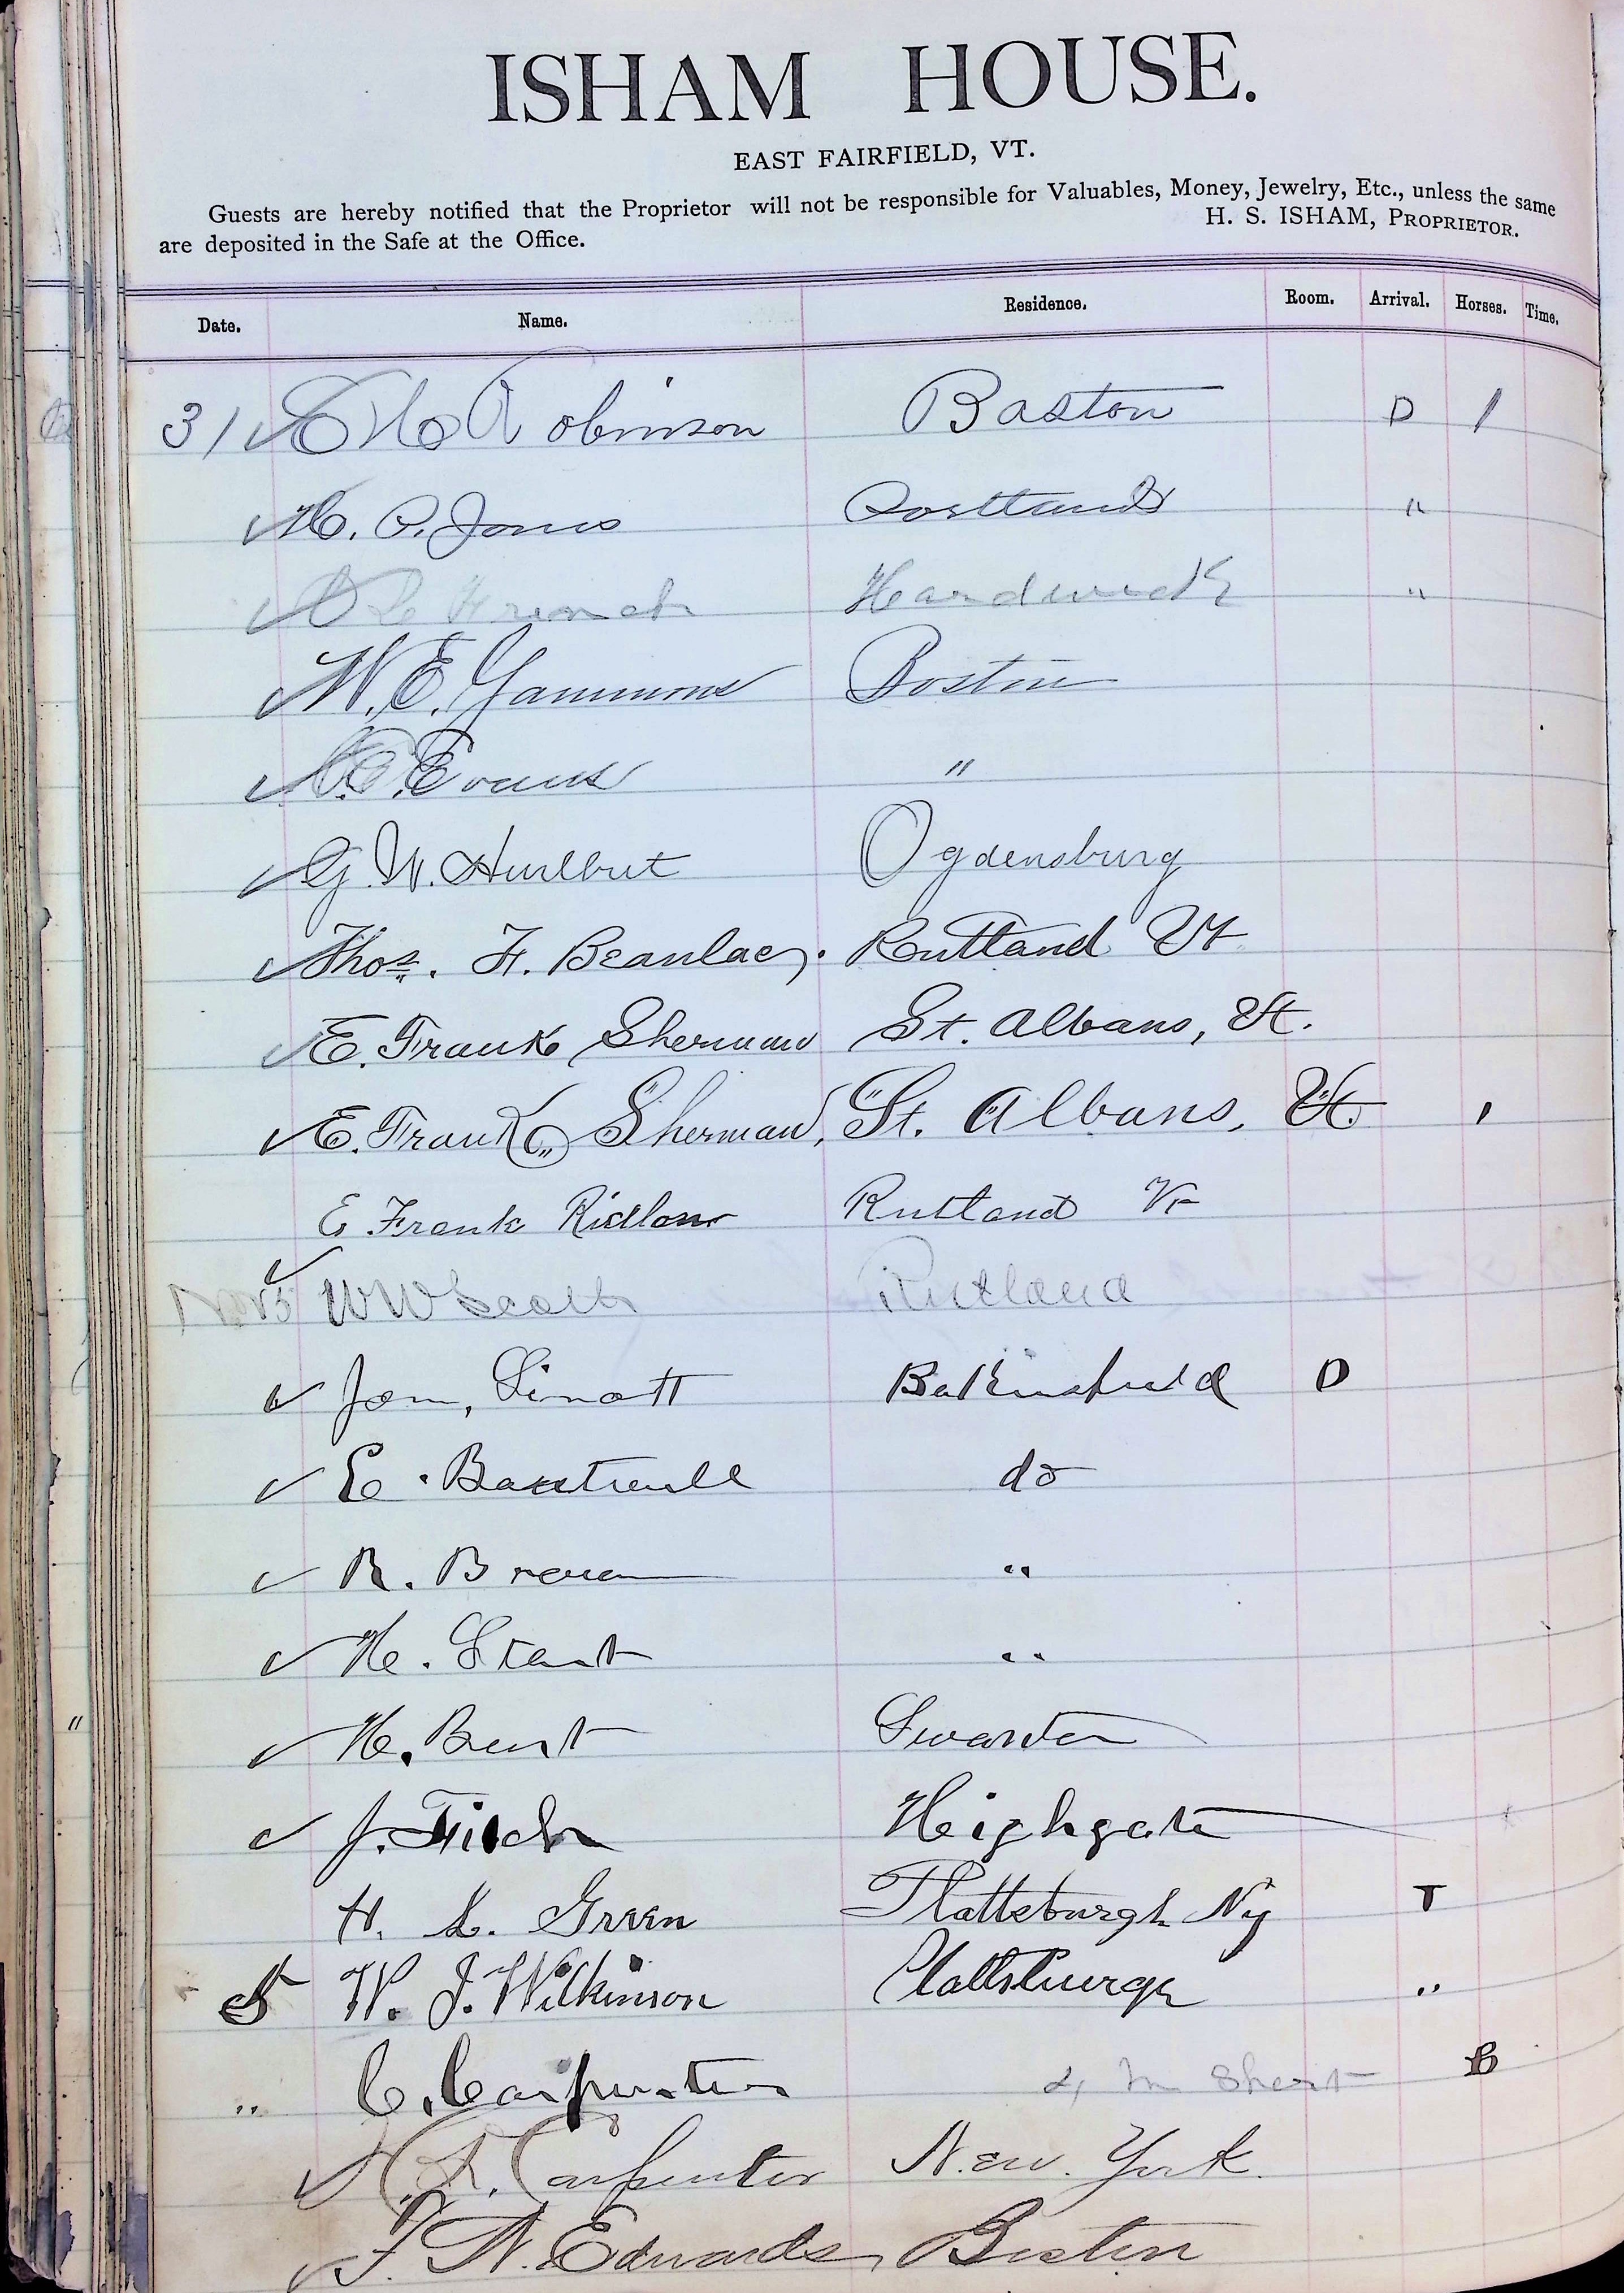 ISHAM HOUSE.
EAST FAIRFIELD, VT.
Guests are hereby notified that the Proprietor will not be responsible for Valuables, Money, Jewelry, Etc., unless the same
are deposited in the Safe at the Office. H. S. ISHAM, PROPRIETOR.
Date. Name. Residence. Room. Arrival. Horses. Time.
31 ✓ Robinson Boston D 1
✓ H. P. Jones Portland "
✓ French Hardwick "
✓ W. E. Gammons Boston
✓ Evans "
✓ G. W. Hurlbut Ogdensburg
✓ Thos. F. Rutland Vt
✓ E. Frank Sherman St. Albans, Vt.
✓ E. Frank Sherman, St. Albans, Vt. 1
✓ E Frank Ridlon Rutland Vt
Nov 5 W W Scott Rutland
✓ Jom, Sinott Bakersfield D
✓ E. do
✓ R. Brown "
✓ H. "
" ✓ H. Burt Swanton
✓ J. Highgate
H. L. Green Plattsburgh Ny T
5 W. J. Wilkinson Plattsburgh "
" C. Carpenter Short B
✓ Carpenter New. York.
✓ F. N. Edwards, Boston